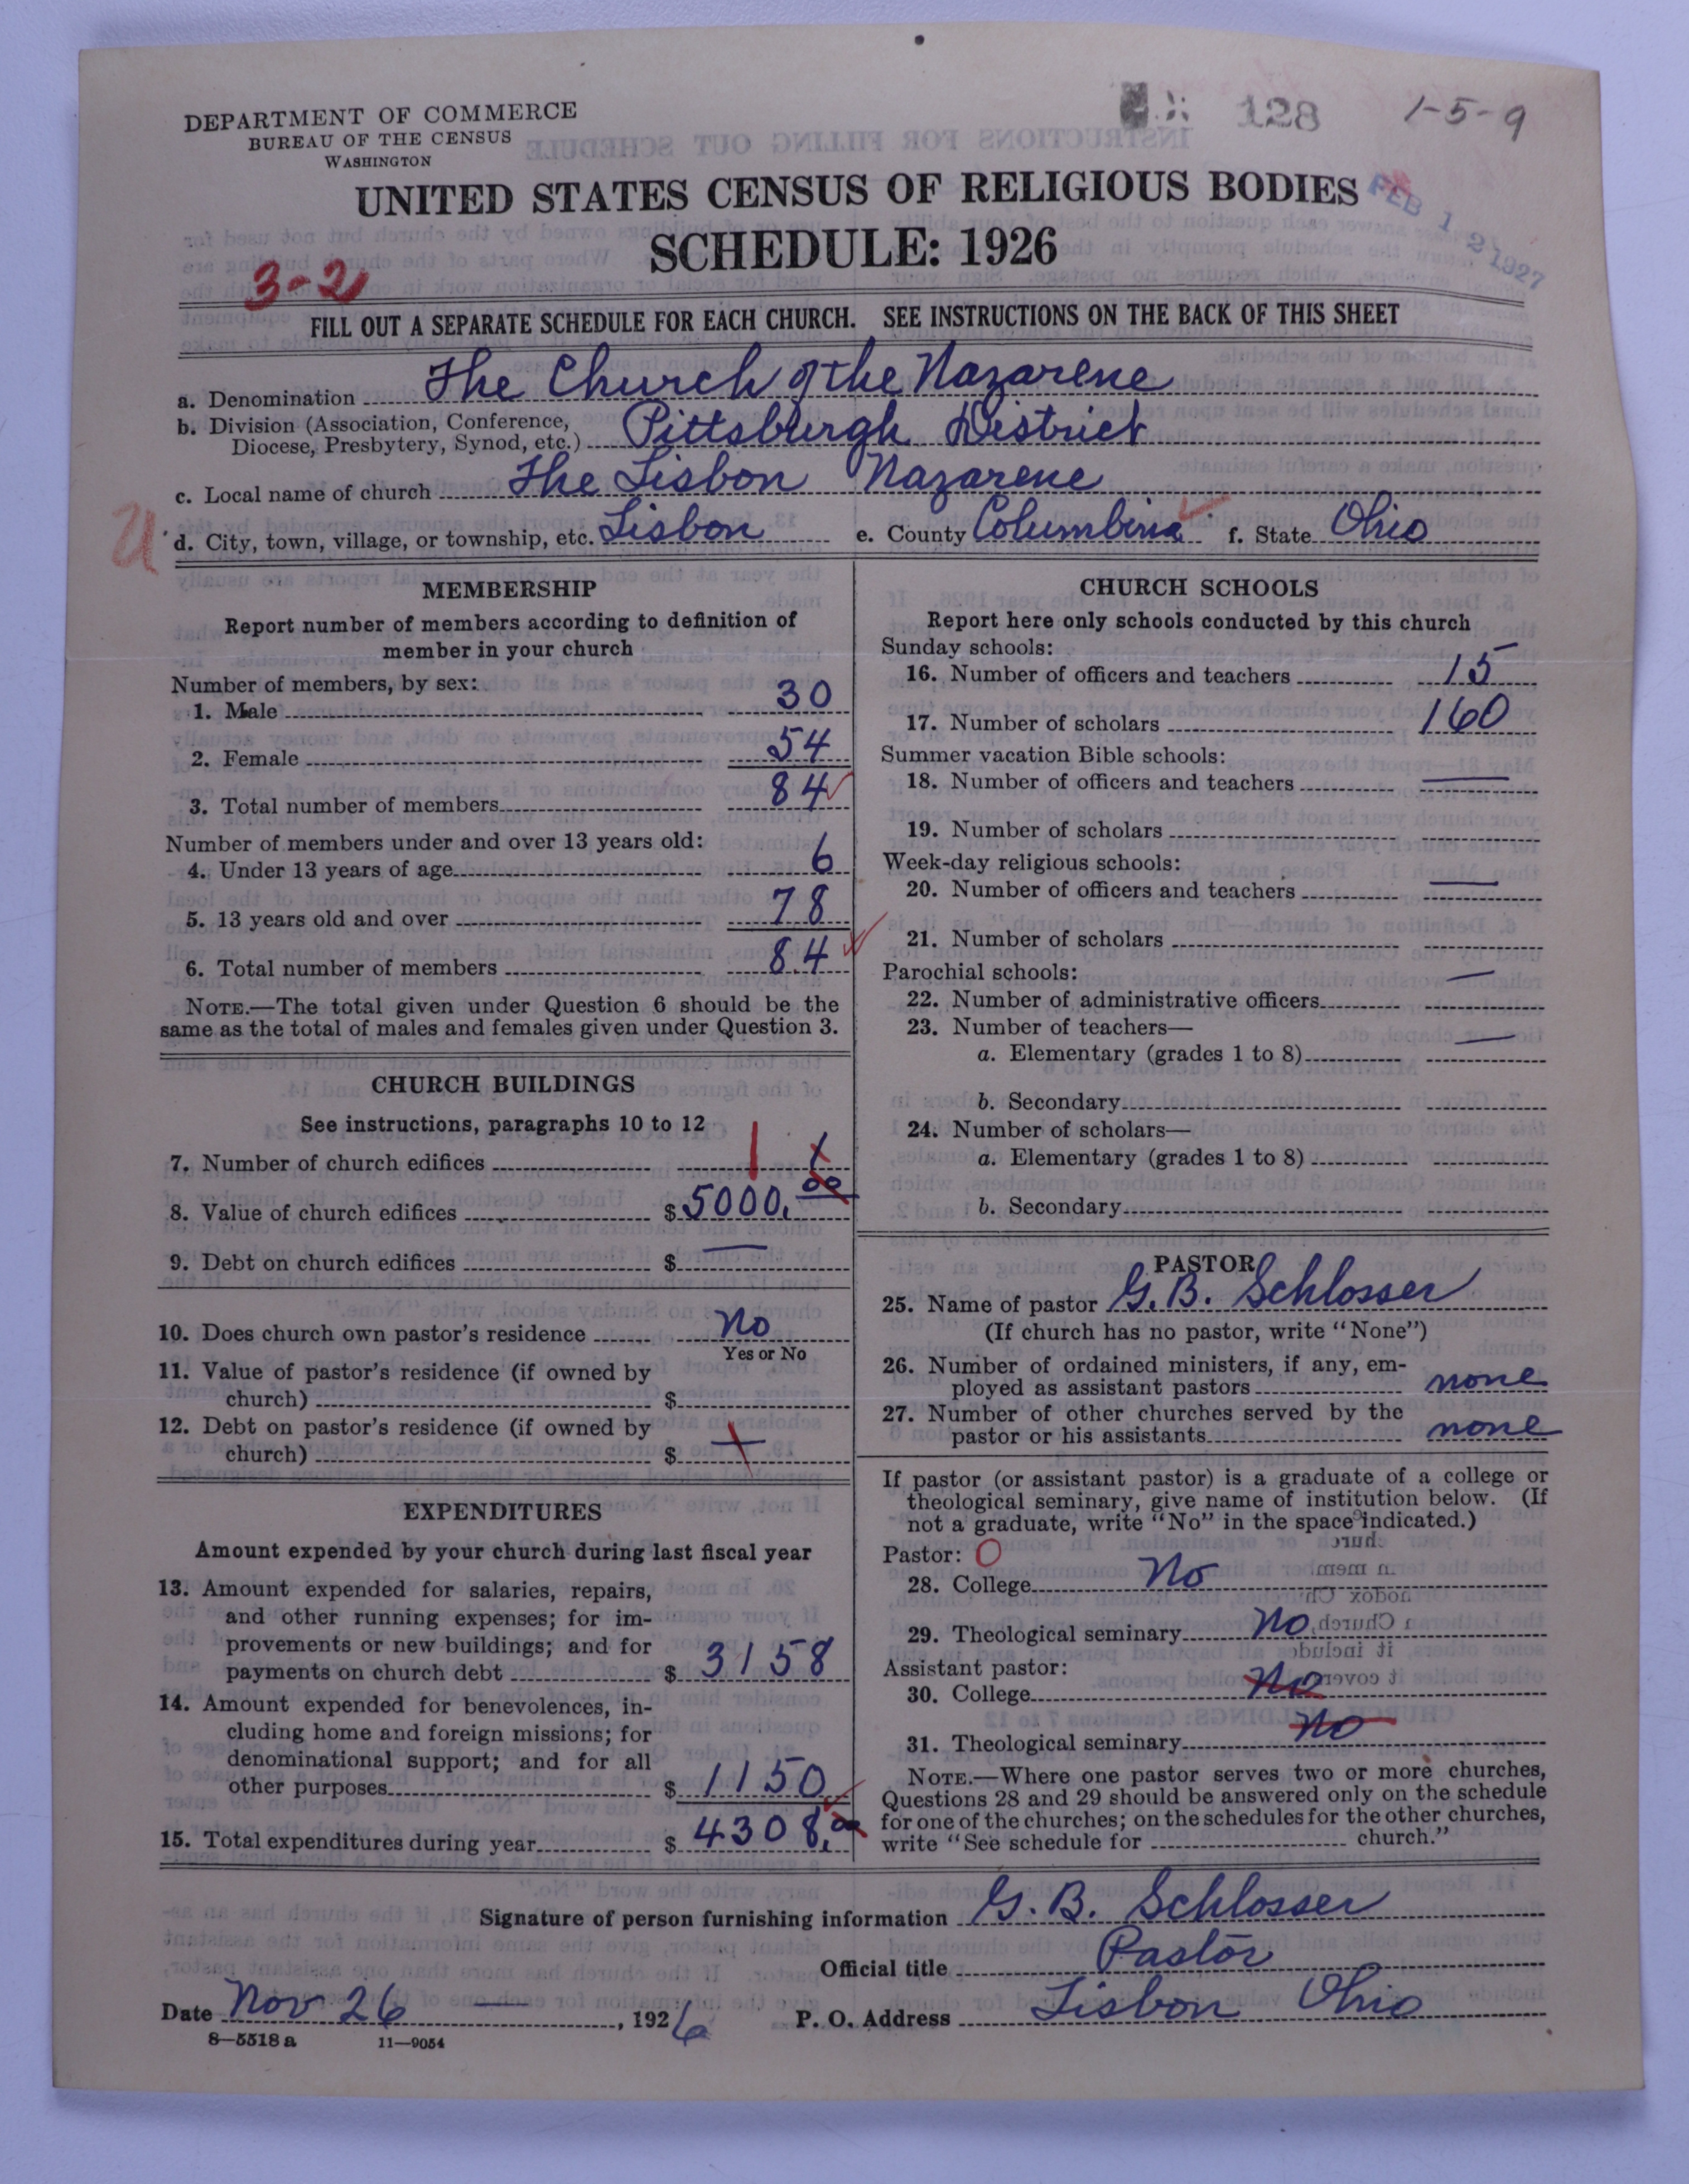 DEPARTMENT OF COMMERCE
BUREAU OF THE CENSUS
WASHINGTON
128
1-5-9
UNITED STATES CENSUS OF RELIGIOUS BODIES
SCHEDULE: 1926
FEB 12 1927
3-2
FILL OUT A SEPARATE SCHEDULE FOR EACH CHURCH. SEE INSTRUCTIONS ON THE BACK OF THIS SHEET
a. Denomination The Church of the Nazarene
b. Division (Association, Conference,
Diocese, Presbytery, Synod, etc.) Pittsburgh District
c. Local name of church The Lisbon Nazarene
d. City, town, village, or township, etc. Lisbon e. County Columbina f. State Ohio
MEMBERSHIP
Report number of members according to definition of
member in your church
Number of members, by sex:
1. Male 30
2. Female 54
3. Total number of members 84
Number of members under and over 13 years old:
4. Under 13 years of age 6
5. 13 years old and over 78
6. Total number of members 84
NOTE.—The total given under Question 6 should be the
same as the total of males and females given under Question 3.
CHURCH BUILDINGS
See instructions, paragraphs 10 to 12
7. Number of church edifices 1 1
8. Value of church edifices $ 5000.00
9. Debt on church edifices $ —
10. Does church own pastor's residence No
Yes or No
11. Value of pastor's residence (if owned by
church) $
12. Debt on pastor's residence (if owned by
church) $ —
EXPENDITURES
Amount expended by your church during last fiscal year
13. Amount expended for salaries, repairs,
and other running expenses; for im-
provements or new buildings; and for
payments on church debt $ 3158
14. Amount expended for benevolences, in-
cluding home and foreign missions; for
denominational support; and for all
other purposes $ 1150
15. Total expenditures during year $ 4308.00
CHURCH SCHOOLS
Report here only schools conducted by this church
Sunday schools:
16. Number of officers and teachers 15
17. Number of scholars 160
Summer vacation Bible schools:
18. Number of officers and teachers —
19. Number of scholars
Week-day religious schools:
20. Number of officers and teachers —
21. Number of scholars
Parochial schools:
22. Number of administrative officers —
23. Number of teachers—
a. Elementary (grades 1 to 8) —
b. Secondary
24. Number of scholars—
a. Elementary (grades 1 to 8)
b. Secondary
PASTOR
25. Name of pastor G. B. Schlosser
(If church has no pastor, write "None")
26. Number of ordained ministers, if any, em-
ployed as assistant pastors none
27. Number of other churches served by the
pastor or his assistants none
If pastor (or assistant pastor) is a graduate of a college or
theological seminary, give name of institution below. (If
not a graduate, write "No" in the space indicated.)
Pastor: O
28. College No
29. Theological seminary No
Assistant pastor:
30. College No
31. Theological seminary No
NOTE.—Where one pastor serves two or more churches,
Questions 28 and 29 should be answered only on the schedule
for one of the churches; on the schedules for the other churches,
write "See schedule for church."
Signature of person furnishing information G. B. Schlosser
Official title Pastor
Date Nov 26 —, 1926 P. O. Address Lisbon Ohio
8—5518 a 11—9054